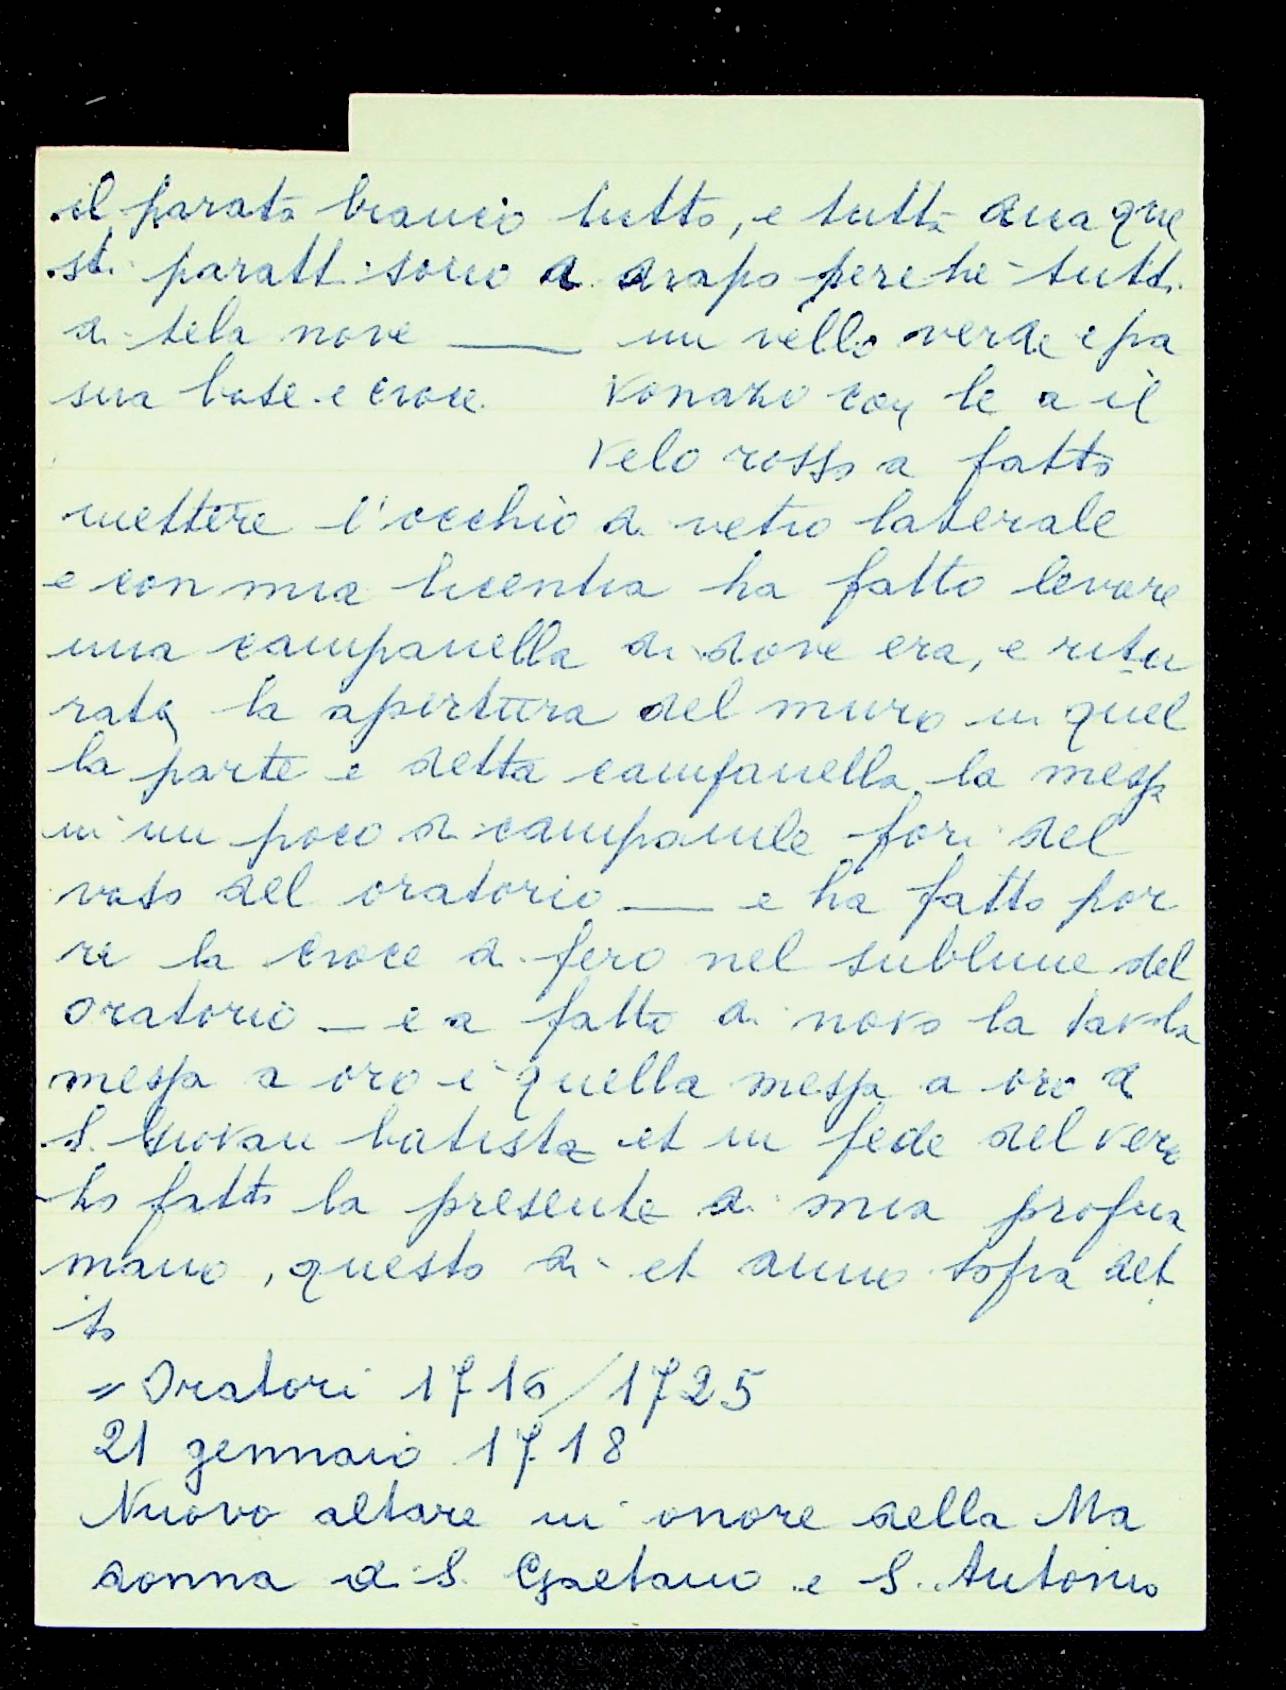 il parato bianco tutto, e tutti dua que
sti paratti sono di drapo perche tutti
di tela nove ___ un vello verde e pa
sua base e croce. vonazo con le a il
velo rosso a fatto
mettere l'occhio di vetro laterale
e con mia licentia ha fatto levare
una campanella di dove era, e ritu
rata la apertura del muro in quel
la parte e detta campanella la messa
in un poco di campanile fori del
vaso del oratorio ___ e ha fatto por
re la croce di fero nel sublime del
oratorio _ e a fatto di novo la tavola
messa a oro e quella messa a oro di
S. Giovan batista et in fede del vero
ho fatto la presente di mia propria
mano, questo di et anno sopra det
to
= Oratori 1716/1725
21 gennaio 1718
Nuovo altare in onore della Ma
donna di S. Gaetano e S. Antonio